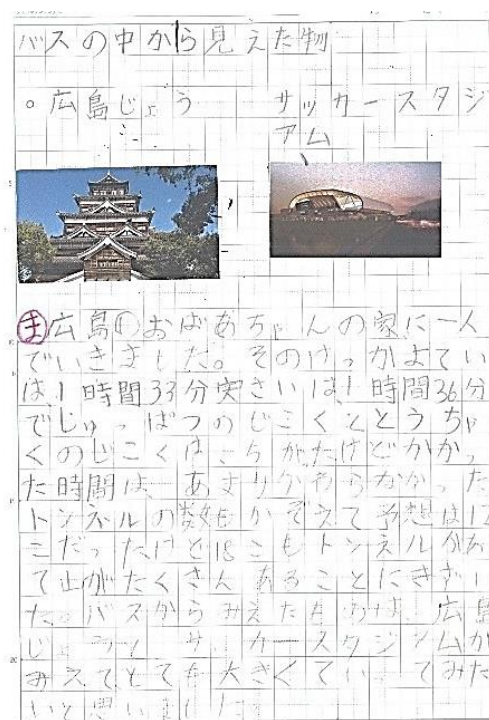 バスの中から見えた物
。広島じょう　サッカースタジ
アム
ま広島のおばあちゃんの家に一人
でいきました。そのけっかよてい
は、1時間33分実さいは、1時間36分
でしゅっぱつのじこくととうちゃ
くのじこくは　ちがたけどかかっ
た時間は　あまりかわらなかった
トンネルの数もかぞえて予想は12
こだったけど18こもトンネルがあ
て山がたくさんあることにきずい
た。バスからみえたものは、広島
じょうとサッカースタジアムが
みえてとても大きくていってみた
いと思いました。